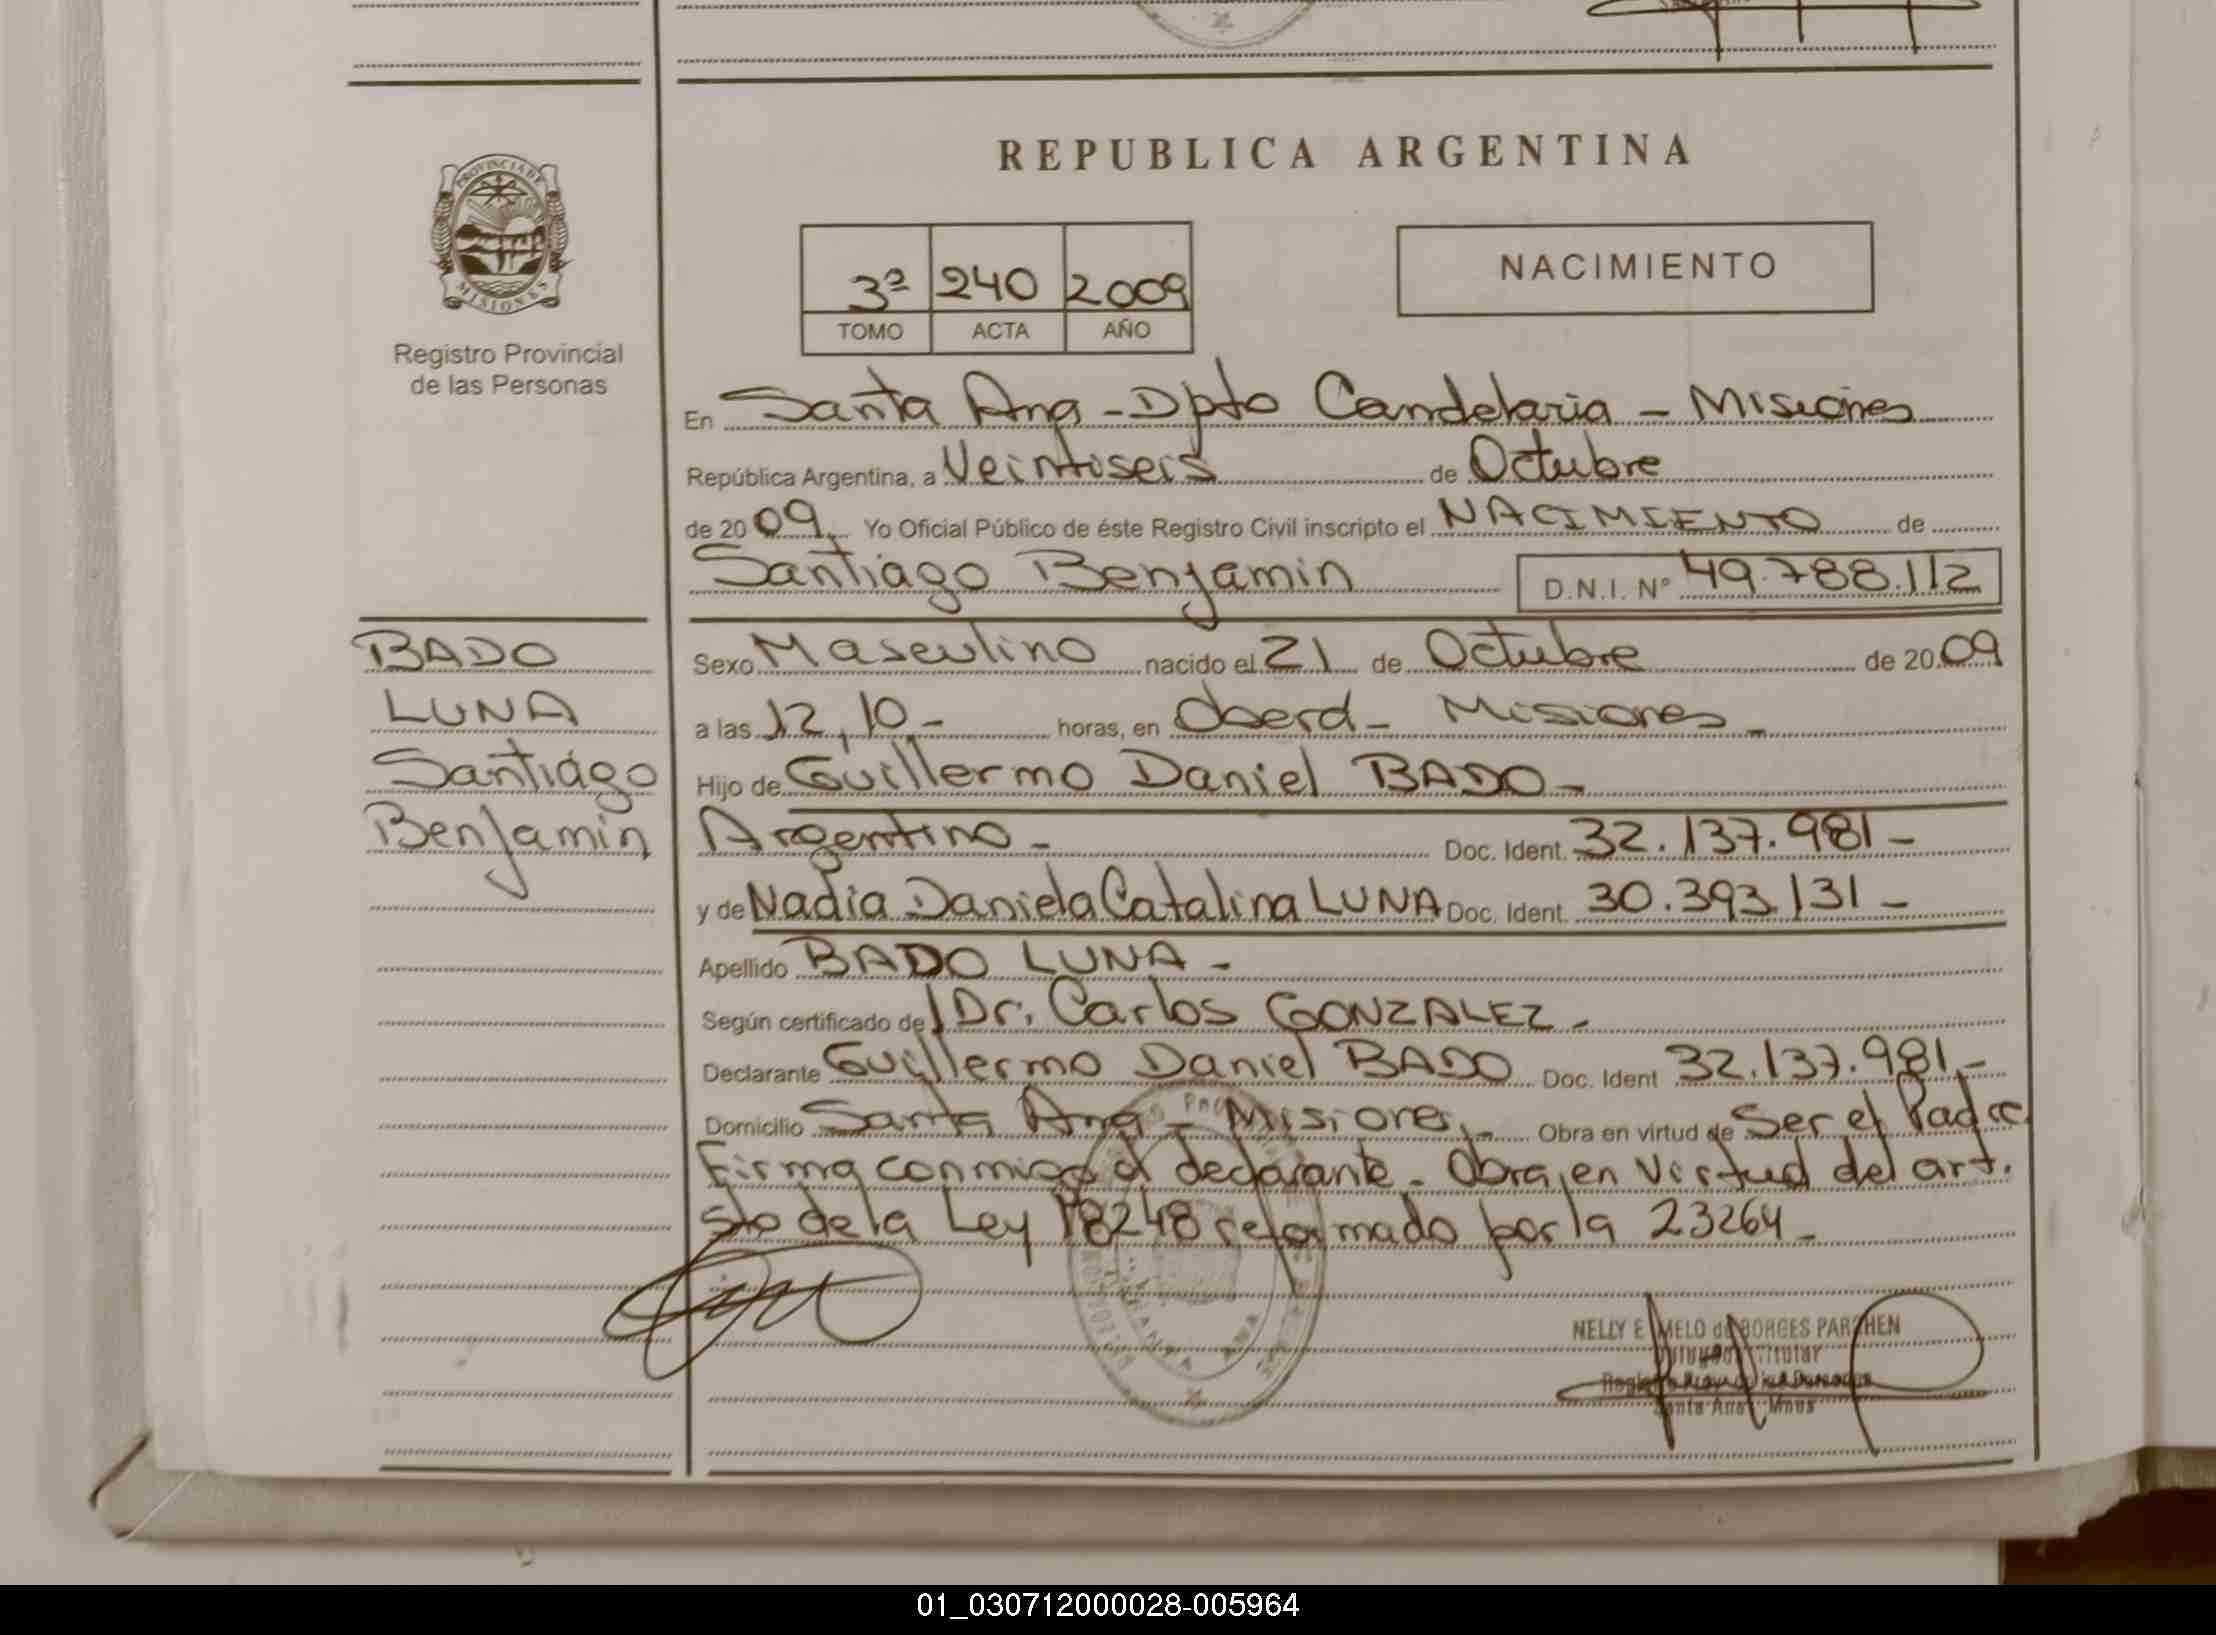 REPUBLICA ARGENTINA
PROVINCIA DE
MISIONES
Registro Provincial
de las Personas
3ª 240 2009
TOMO ACTA AÑO
NACIMIENTO
En Santa Ana - Dpto Candelaria - Misiones
República Argentina, a Veintiseis de Octubre
de 2009 Yo Oficial Público de éste Registro Civil inscripto el NACIMIENTO de
Santiago Benjamin D.N.I. Nº 49.788.112
BADO
LUNA
Santiago
Benjamin
Sexo Masculino nacido el 21 de Octubre de 2009
a las 12,10 - horas, en Oberá - Misiones -
Hijo de Guillermo Daniel BADO -
Argentino - Doc. Ident. 32.137.981 -
y de Nadia Daniela Catalina LUNA Doc. Ident. 30.393.131 -
Apellido BADO LUNA -
Según certificado de Dr. Carlos GONZALEZ -
Declarante Guillermo Daniel BADO Doc. Ident 32.137.981 -
Domicilio Santa Ana - Misiones - Obra en virtud de Ser el Padre
Firma conmigo el declarante - Obra en Virtud del art.
5to de la Ley 18248 reformado por la 23264 -
SANTA ANA
NELLY E MELO de BORGES PARCHEN
Titular
Santa Ana Mnes
01_030712000028-005964